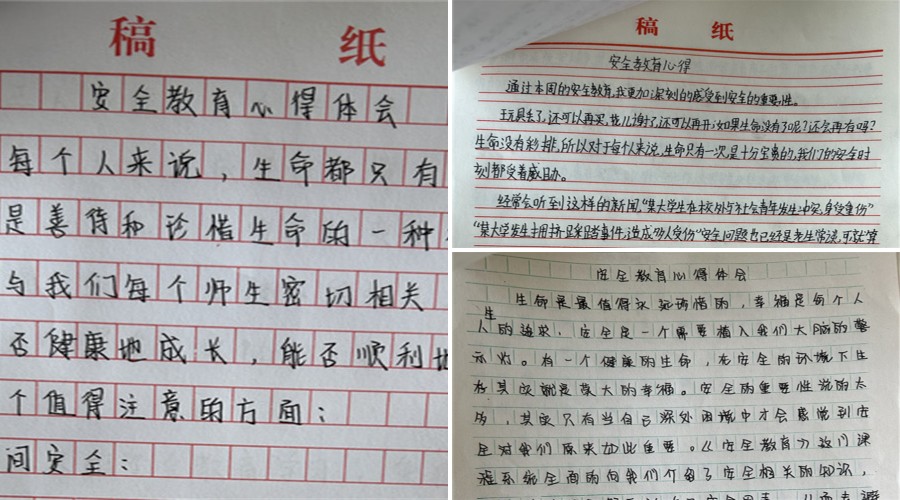 稿 纸
安全教育心得体会
每个人来说，生命都只有
是善待和珍惜生命的一种
与我们每个师生密切相关
否健康地成长，能否顺利地
个值得注意的方面：
间安全：
稿 纸
安全教育心得
通过本周的安全教育，我更加深刻的感受到安全的重要性。
玩具丢了，还可以再买，花儿谢了，还可以再开，如果生命没有了呢？还会再有吗？
生命没有彩排，所以对于每个人来说，生命只有一次，是十分宝贵的，我们的安全时
刻都受着威胁。
经常会听到这样的新闻，“某大学生在校外与社会青年发生冲突，身受重伤”
“某大学发生拥挤踩踏事件，造成多人受伤”安全问题也已经是老生常谈，可就算
安全教育心得体会
生命是最值得永远珍惜的，幸福是每个人
生
人的追求，安全是一个需要植入我们大脑的警
示灯。有一个健康的生命，在安全的环境下生
存其实就是莫大的幸福。安全的重要性说的太
多，其实只有当自己深处困境中才会感觉到安
全对我们原来如此重要。《安全教育》这门课
程系统全面的向我们介绍了安全相关的知识，